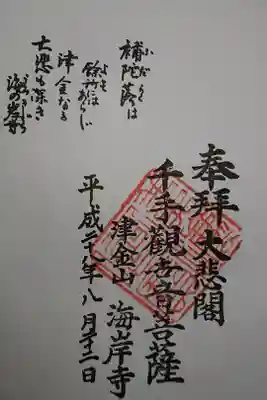 奉拝 大悲閣
千手觀世音菩薩
津金山 海岸寺
平成 年八月 二日
補陀落は
餘所にはあらじ
津金なる
大悲も深き
海の岸寺